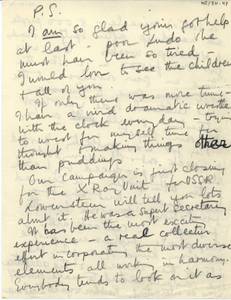 P.S.
I am so glad you've got help
at last - poor Sudo she
must have been so tired -
I would love to see the children
& all of you
If only there was more time -
I have a wild dramatic wrestle
with the clock every day - trying
to wrest for myself time for
thought & making things other
than puddings
Our Campaign is first closing
for the X Ray Unit for
Lowenstein will tell you lots
about it. He was a superb secretary
It has been the most exciting
experience - a real collective
effort incorporating the most diverse
elements all working in harmony.
Everybody tends to look on it as